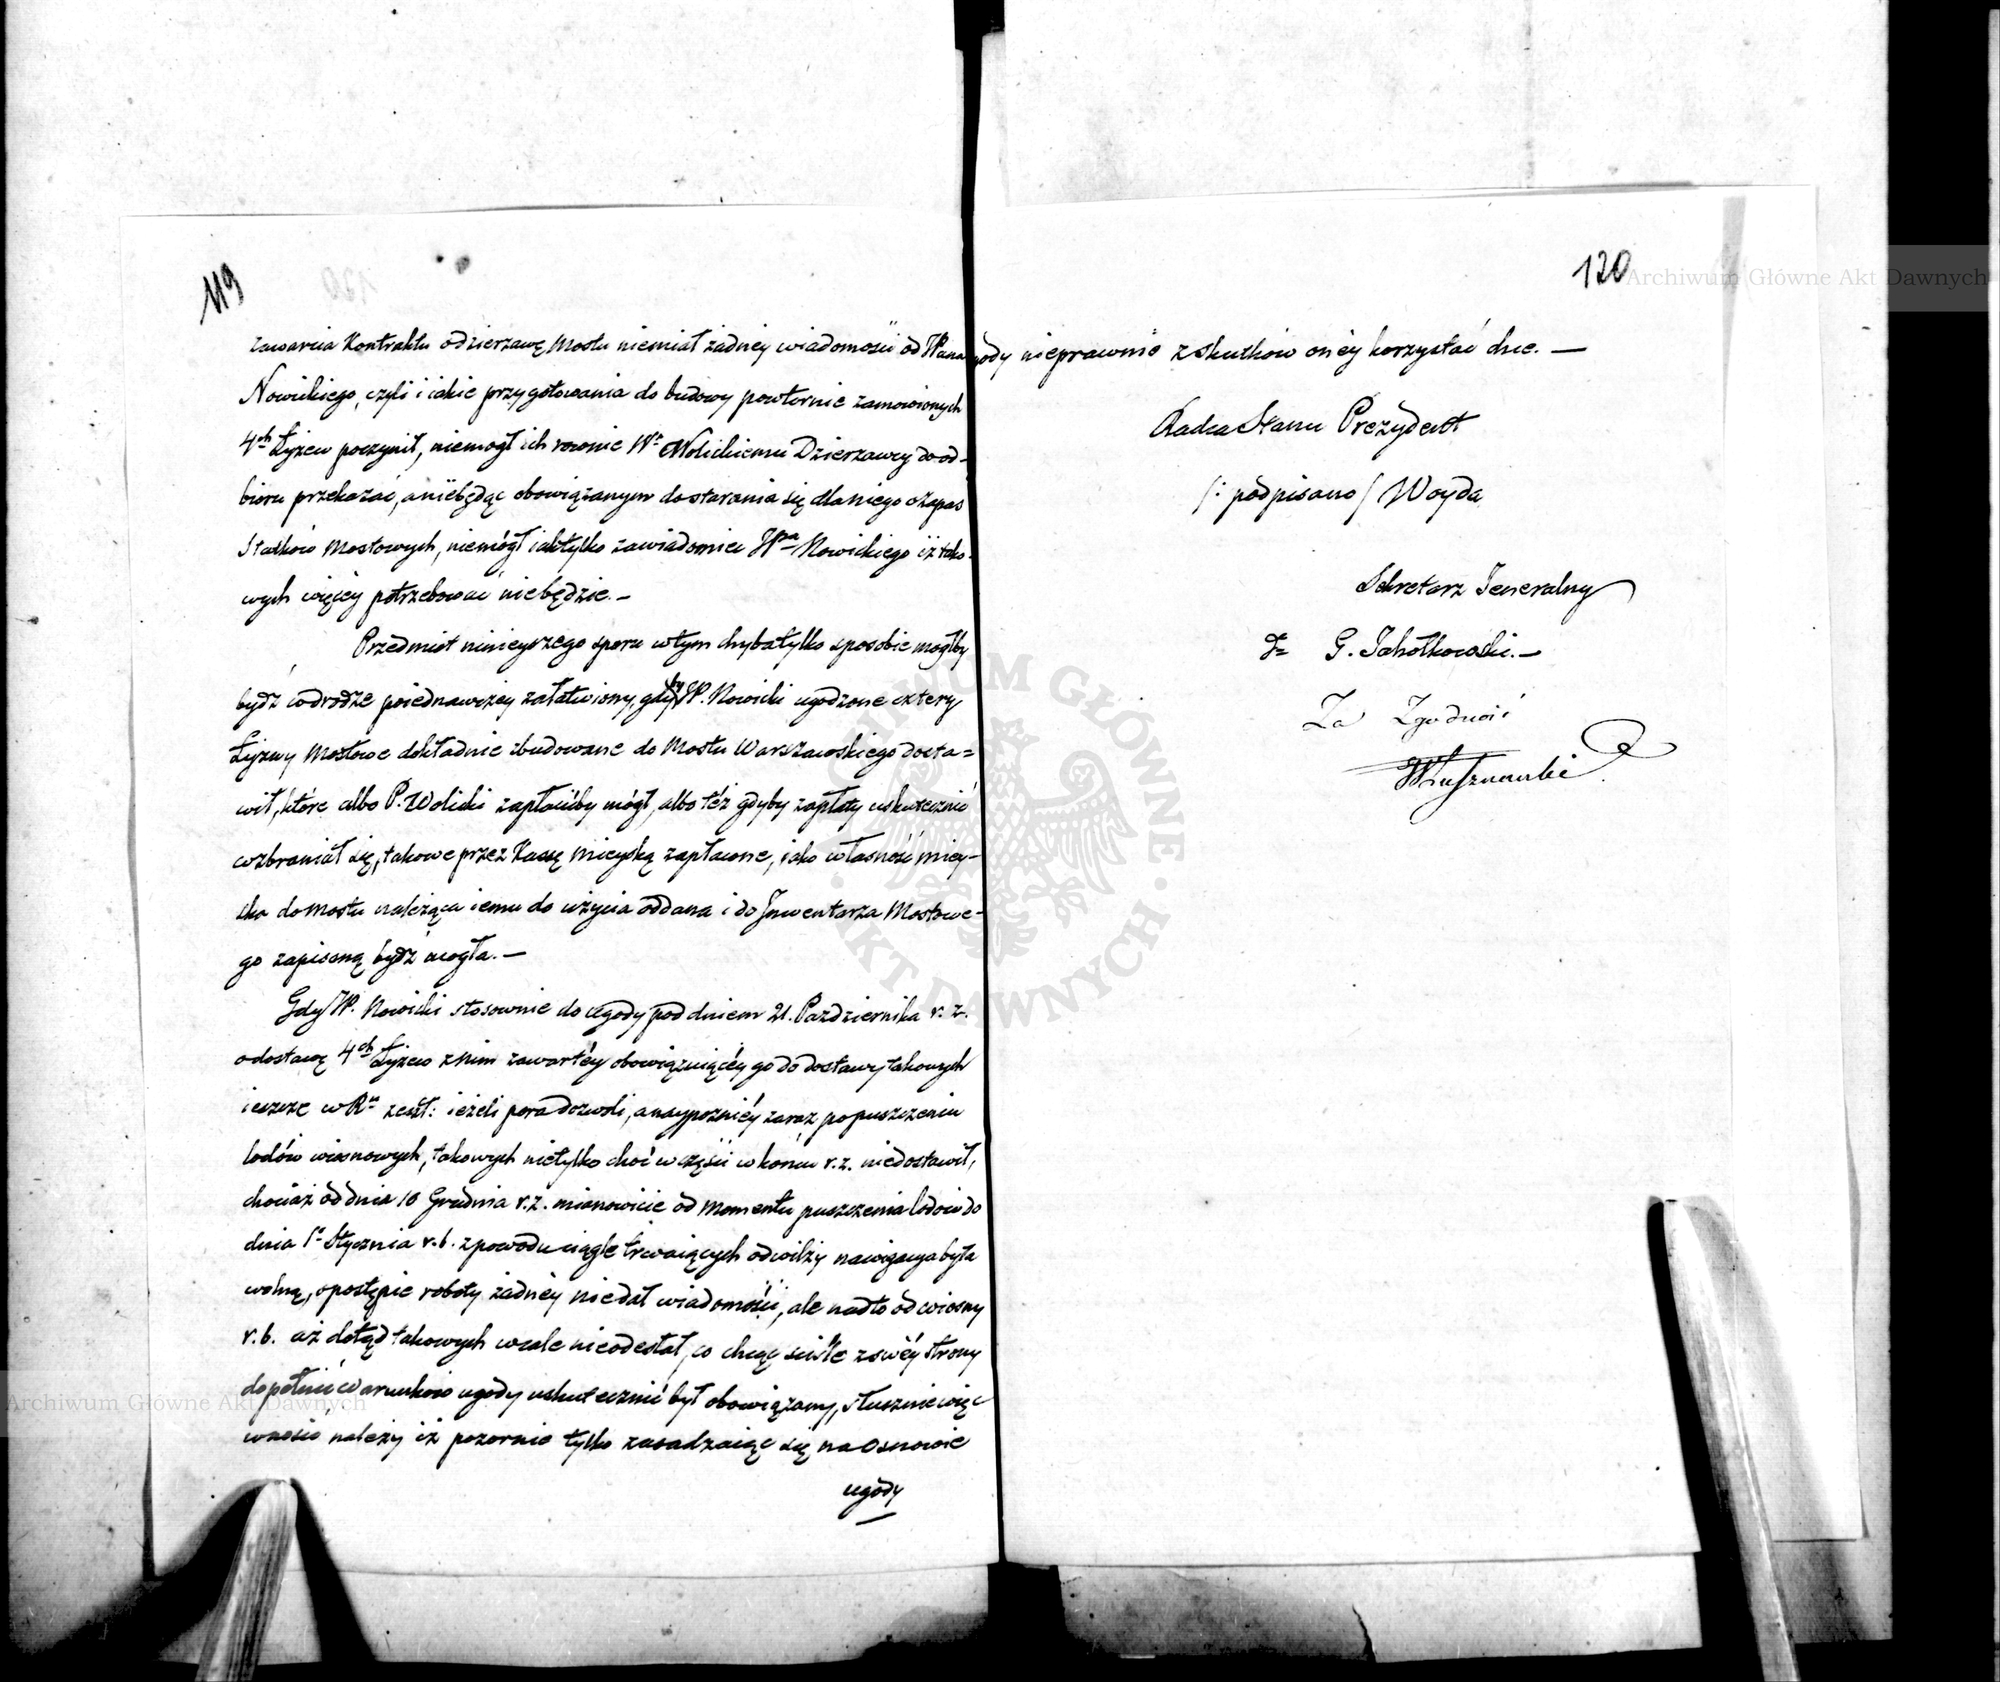 119
zawarcia Kontraktu o dzierzawę Mostu niemiał żadney wiadomości od Wana
Nowickiego, czyli i iakie przygotowania do budowy powtornie zamowionych
4ch Łyżew poczynił, niemogł ich rownie Wu Wolickiemu Dzierzawcy do od-
bioru przekazać, a niebędąc obowiązanym do starania się dla niego o zapas
Statków Mostowych, niemógł iak tylko zawiadomić Wgo Nowickiego iż tako-
wych więcey potrzebować niebędzie.-
Przedmiot ninieyszego sporu w tym chyba tylko sposobie mogłby
bydź w drodze poiednawczey załatwiony, gdyby W. Nowicki ugodzone cztery
Łyżwy Mostowe dokładnie zbudowane do Mostu Warszawskiego dosta=
wił, które albo P. Wolicki zapłaciłby mógł, albo też gdyby zapłaty uskutecznić
wzbraniał się, takowe przez Kassę Mieyską zapłacone, iako własność miey-
ska do mostu należąca iemu do użycia oddana i do Inwentarza Mostowe-
go zapisaną bydź mogła.-
Gdy W. Nowicki stosownie do ugody pod dniem 21. Pazdziernika r. z.
o dostawę 4ch Łyżew z nim zawartéy obowiązuiącéy go do dostawy takowych
ieszcze w Ru zeszł: ieżeli pora dozwoli, a naypoźniéy zaraz po puszczeniu
lodów wiosnowych, takowych nietylko choć w części w końcu r. z. niedostawił,
chociaż od dnia 10 Grudnia r. z. mianowicie od momentu puszczenia lodów do
dnia 1o Stycznia r. b. z powodu ciągle trwaiących odwilży nawigacya była
wolną, o postępie roboty żadnéy niedał wiadomości, ale nadto od wiosny
r. b. aż dotąd takowych wcale nieodesłał, co chcąc ściśle z swéy strony
dopełnić warunków ugody uskutecznić był obowiązany, słusznie więc
wnosić należy iż pozornie tylko zasadzaiąc się na osnowie
ugody
120
ugody nieprawnie z skutkow onéy korzystać chce. -
Radca Stanu Prezydent
/: podpisano / Woyda
Sekretarz Jeneralny
G. Jahołkowski.-
Za Zgodność
Archiwum Główne Akt Dawnych
Archiwum Główne Akt Dawnych
ARCHIWUM GŁÓWNE · AKT DAWNYCH ·